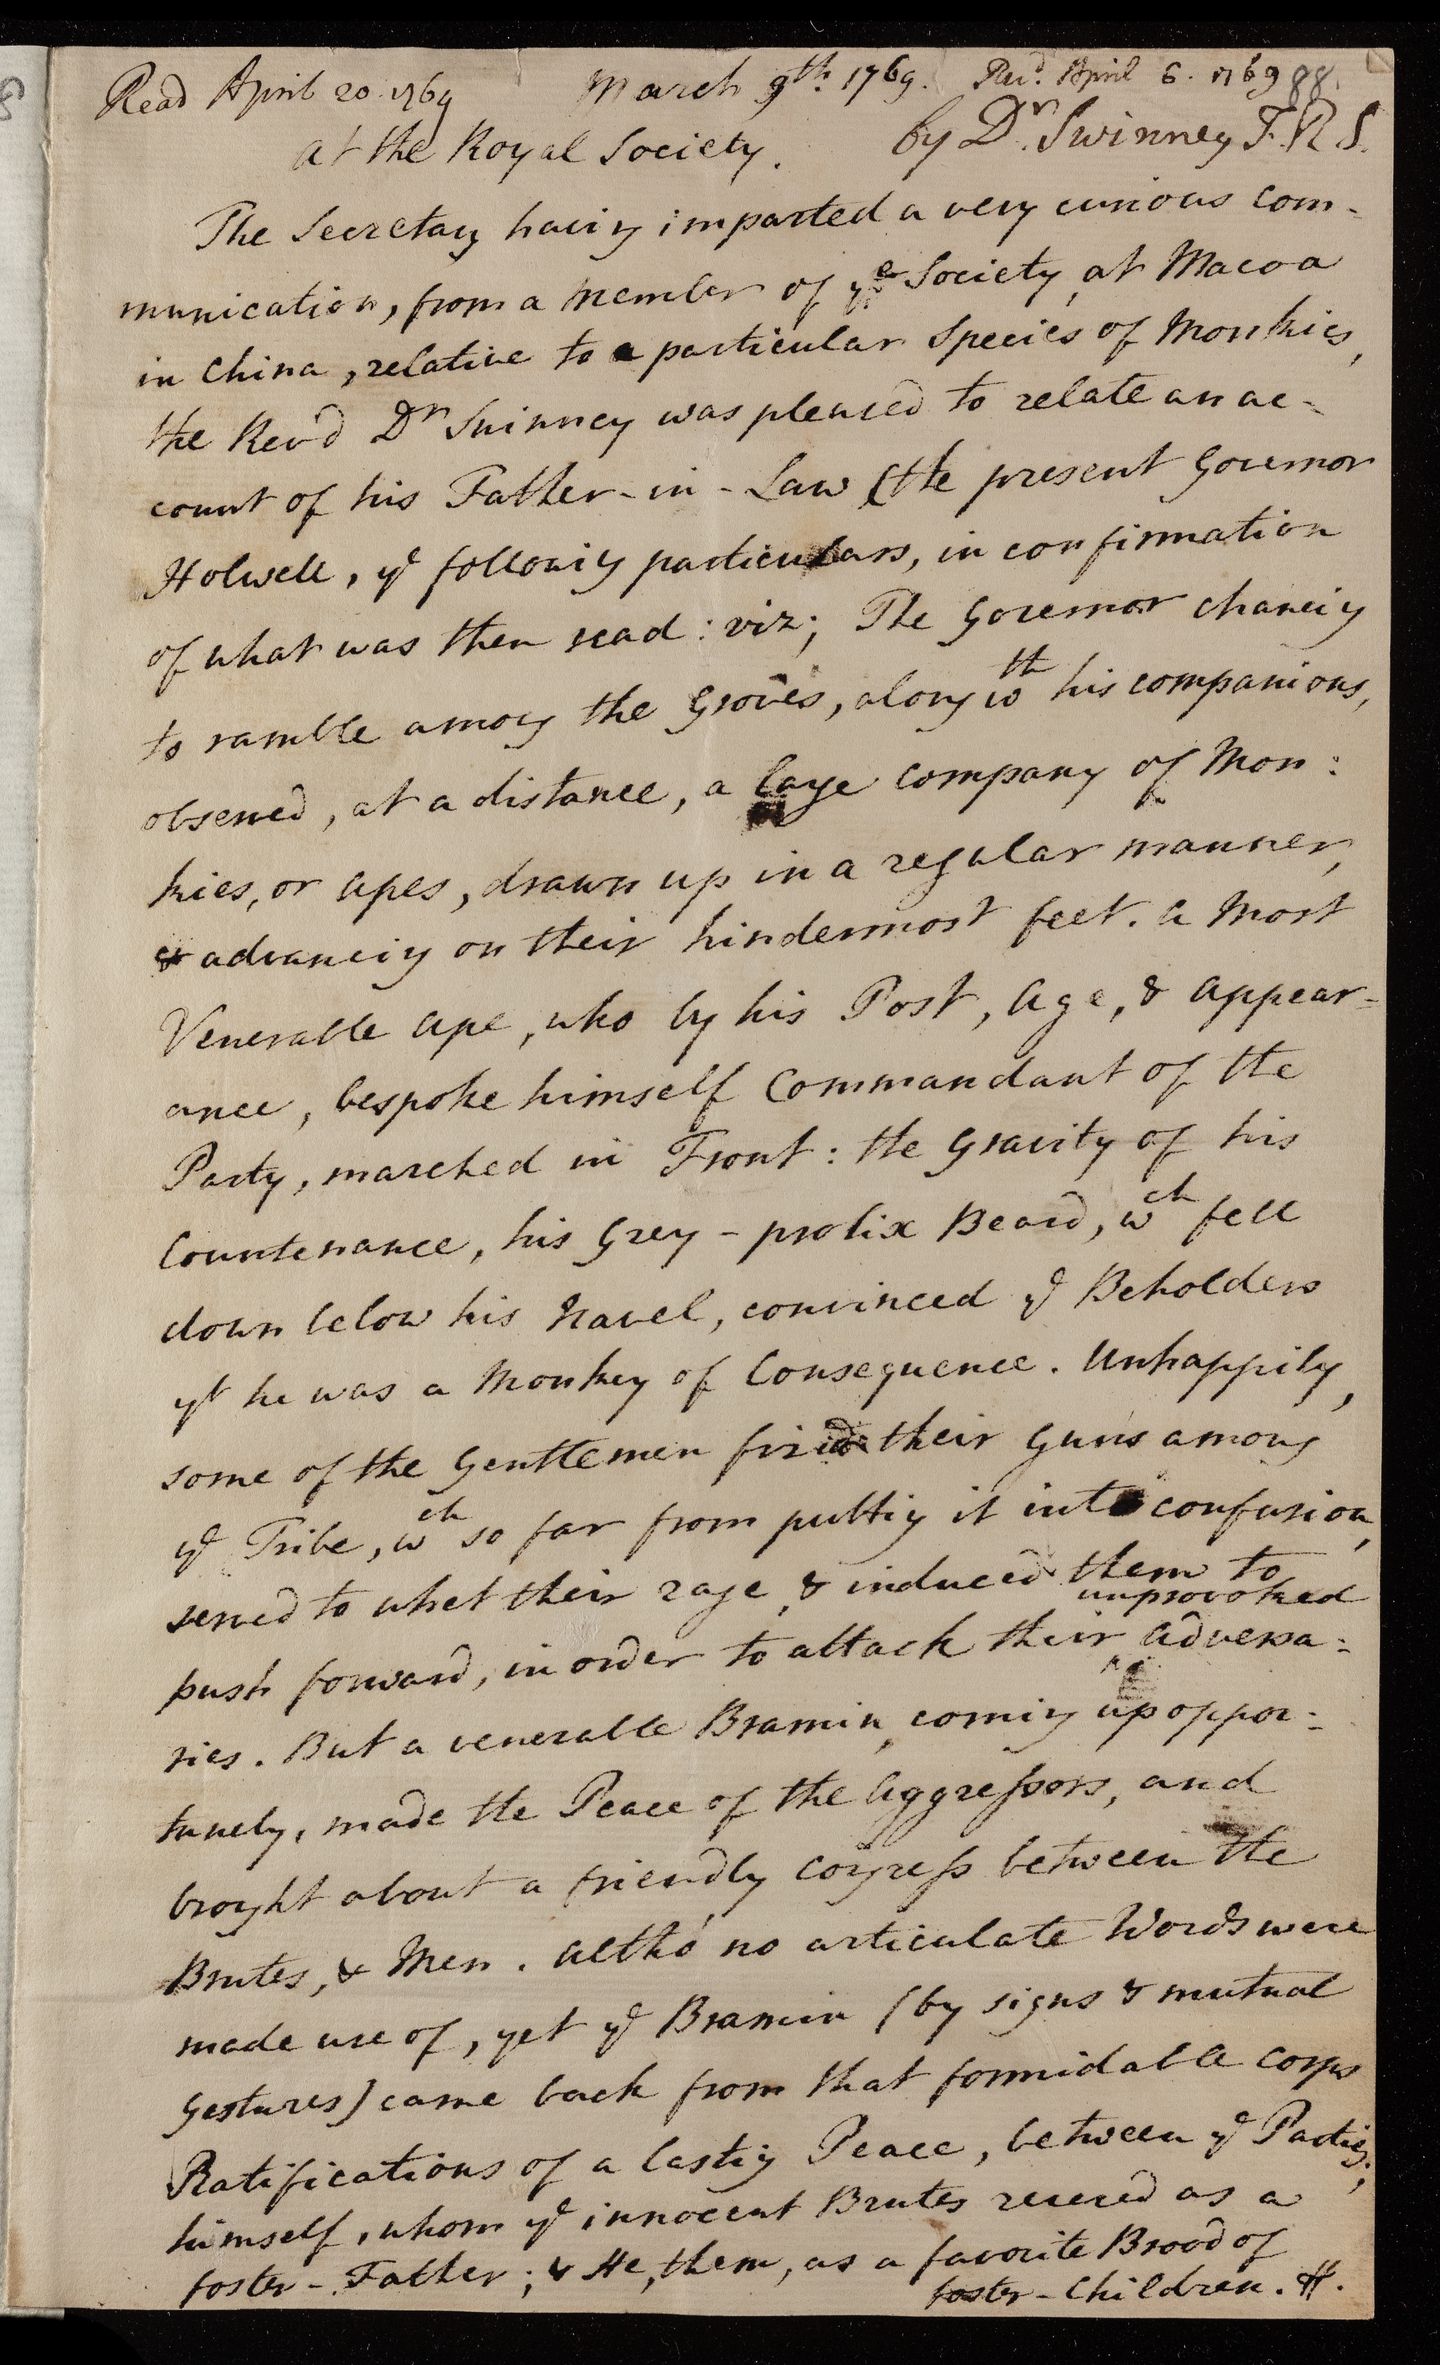 Read April 20. 1769 March 9th. 1769. Recd. April 6. 1769 88.
at the Royal Society. by Dr. Swinney F.R.S.
The Secretary having imparted a very curious com-
munication, from a Member of ye Society, at Macoa
in China, relative to a particular Species of Monkies,
the Rev'd Dr Swinney was pleased to relate an ac-
count of his Father-in-Law (the present Governor
Holwell, ye following particulars, in confirmation
of what was then read: viz; The Governor chancing
to ramble among the Groves, along wth his companions,
observed, at a distance, a large Company of Mon:
kies, or Apes, drawn up in a regular manner,
& advancing on their hindermost feet. A Most
Venerable Ape, who by his Post, Age, & Appear-
ance, bespoke himself Commandant of the
Party, marched in Front: the Gravity of his
Countenance, his Grey-prolix Beard, wch fell
down below his Navel, convinced ye Beholders
yt he was a Monkey of Consequence. Unhappily,
some of the Gentlemen fir'd their Guns among
ye Tribe, wch so far from putting it into confusion,
served to whet their rage, & induced them to
unprovoked
push forward, in order to attack their Adversa:
ries. But a venerable Bramin, coming up oppor:
tunely, made the Peace of the Aggressors, and
brought about a friendly Congress between the
Brutes, & Men. Altho' no articulate Words were
made use of, yet ye Bramin (by signs & mutual
Gestures) came back from that formidable Corps
Ratifications of a lasting Peace, between ye Parties;
himself, whom ye innocent Brutes revered as a
foster-Father; & He, them, as a favorite Brood of
foster-Children. H.